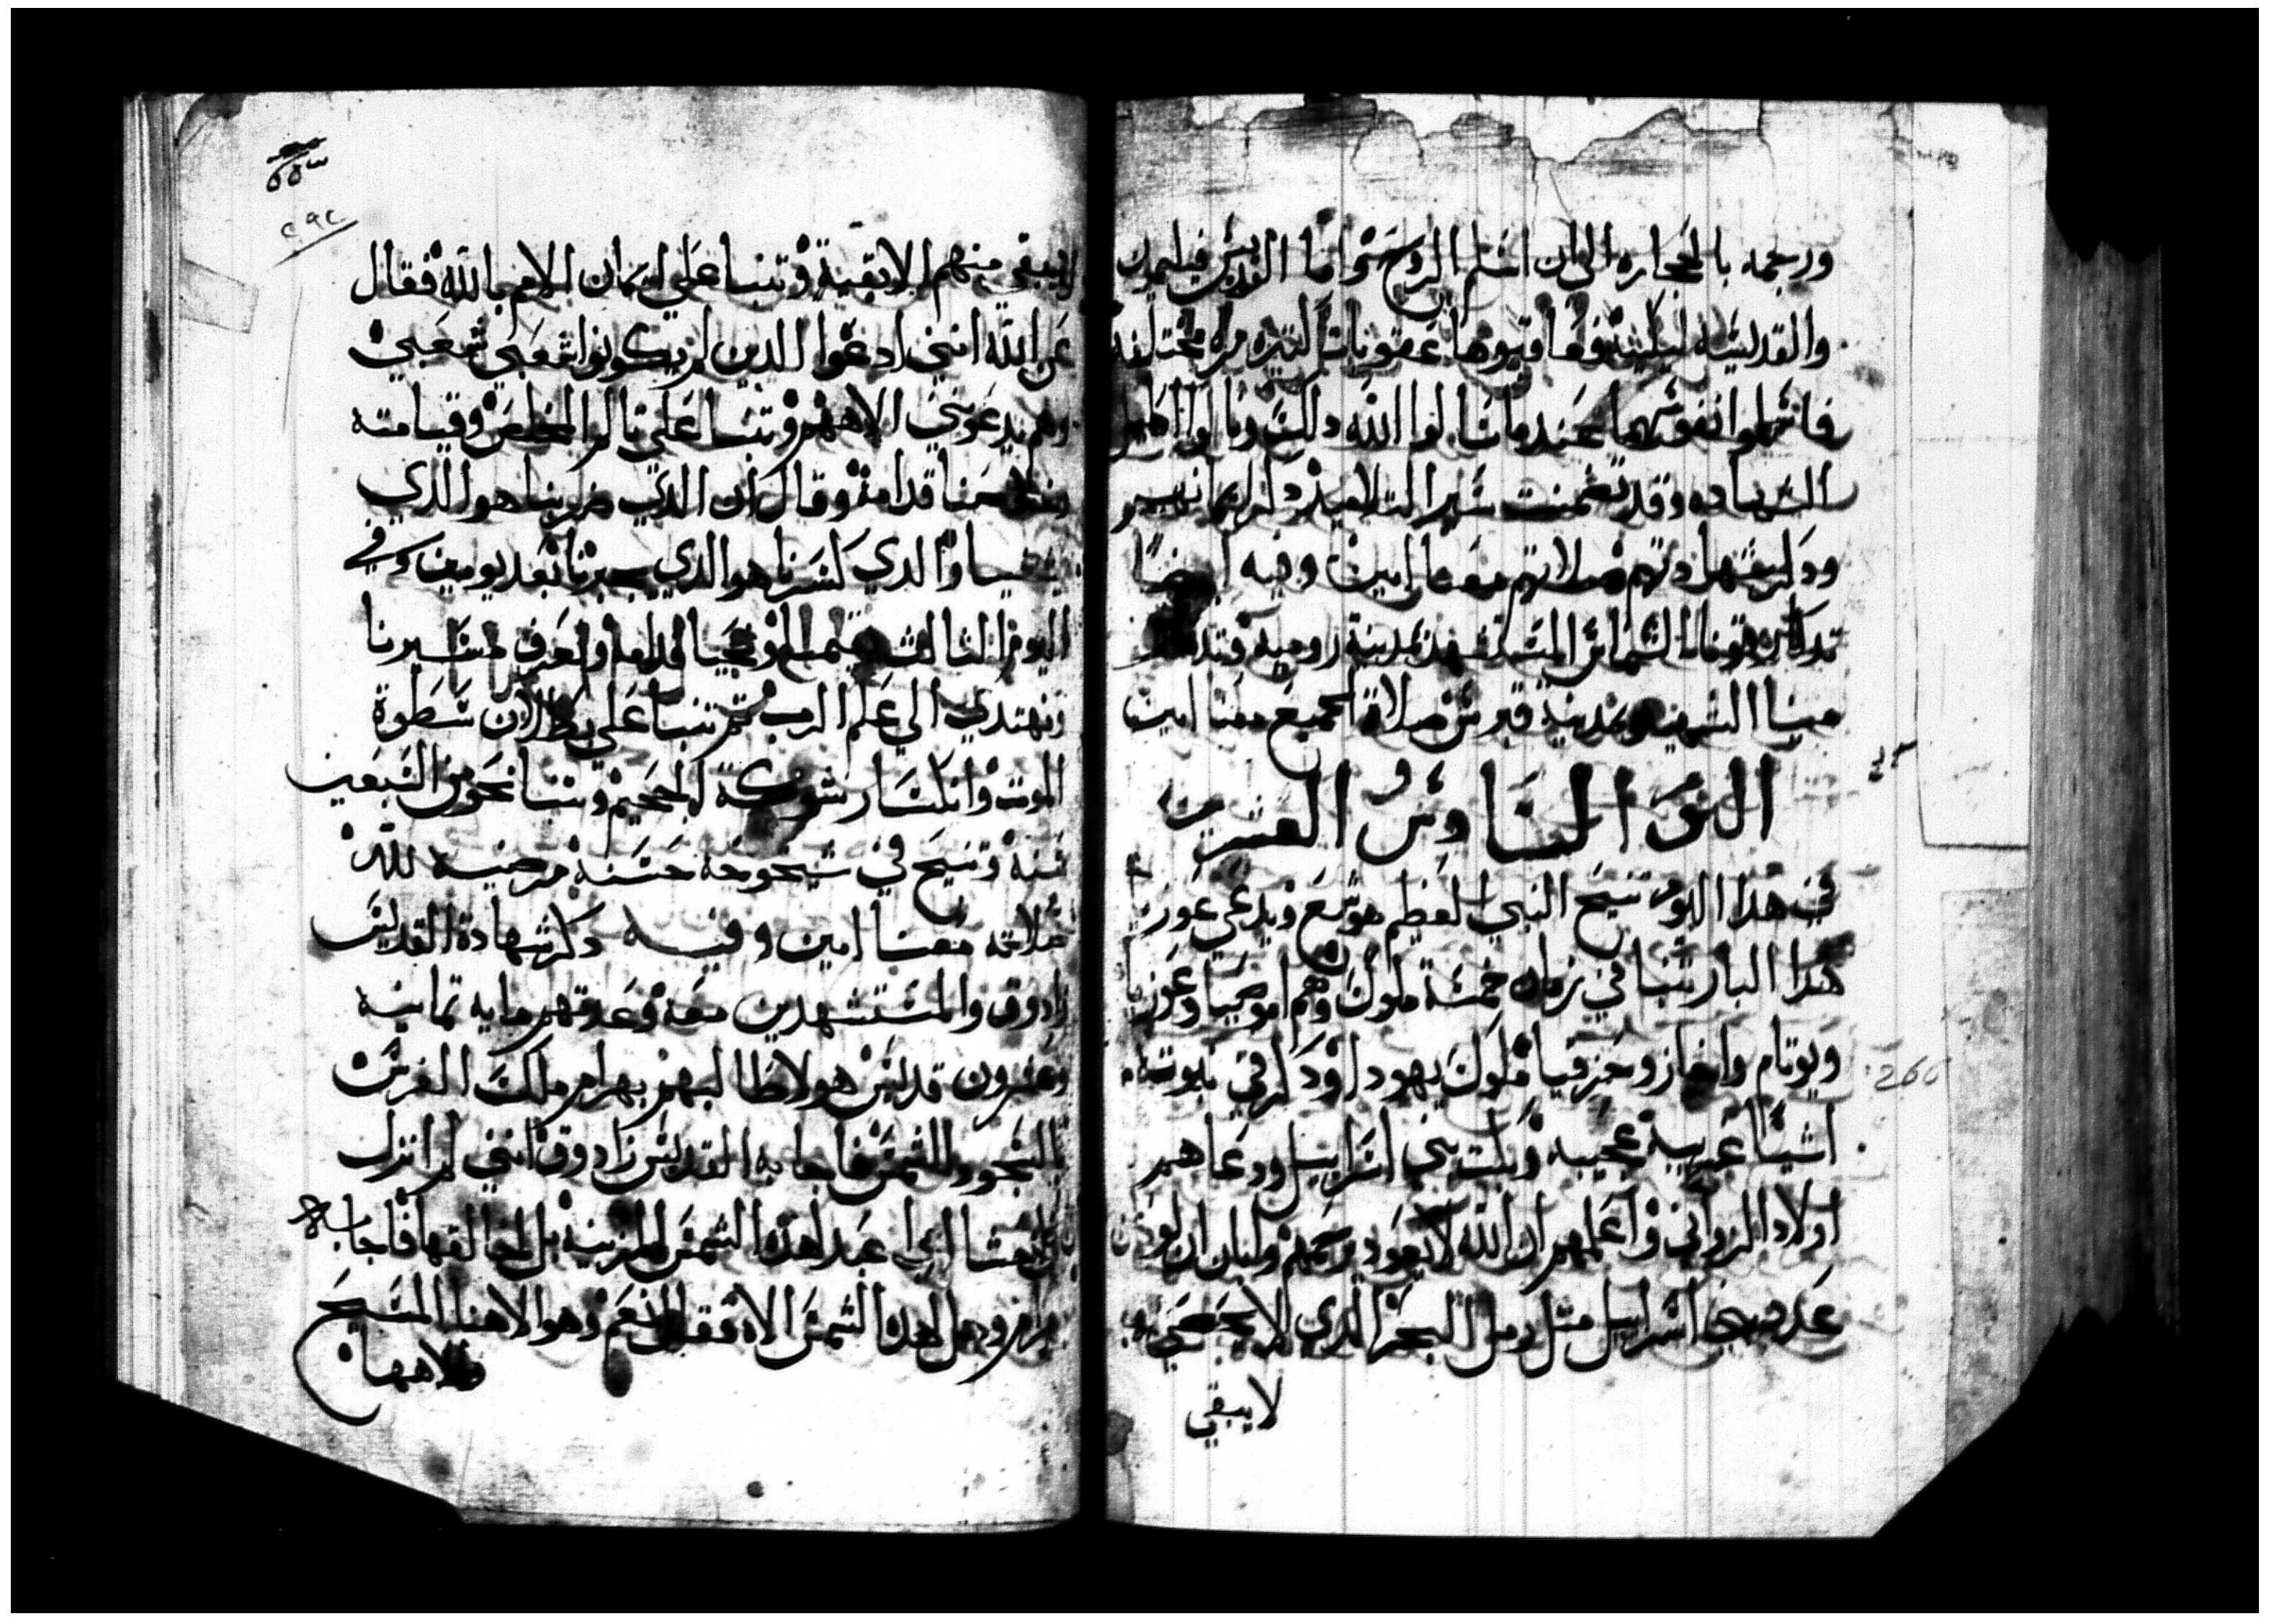 ورجمه بالحجاره الي ان اسلم الروح واما القديس فيليمن
والقديسه ليلينه وعاقبوها عقوبات كتيره مختلفه
فاسلموا نفوسهما عندما سالوا الله دلك ونالوا اكليل
الشهاده وقد تضمنت سير التلاميذ دكر ايمانهم
ودكر شهادتهم صلاتهم معنا امين وفيه ايضا
تدكار الشماس المستشهد بمدينة روميه وتدكار
ميسا الشهيد بمدينة قبرس صلاة الجميع معنا امين
اليوم السادس والعشرين
في هدا اليوم تنيح النبي العظيم هوشع ويدعي عوزيا
هدا البار تنبا في زمان خمسة ملوك وهم اموصيا وعوزيا
ويوتام واخاز وحزقيا ملوك يهودا ودكر في نبوته
اشيا غريبه عجيبه وبكت بني اسراييل ودعاهم
اولاد الزواني واعلمهم ان الله لا يعود يرحمهم وابان ان يكون
عدد بني اسراييل متل رمل البحر الدي لا يحصي به
لا يبقي
لا يبقي منهم الا بقية وتنبا علي ايمان الامم بالله فقال
عن الله انني ادعوا الدين لم يكونوا شعبي شعبي
وهم يدعوني الاههم وتنبا علي تالم المخلص وقيامته
قدامه وقال ان الدي ضربنا هو الدي
يشفينا والدي كسرنا هو الدي يجبرنا بعد يومين وفي
اليوم التالت نقوم ونحيا قدامه ونعرف مسيرنا
ونهتدي الي علم الرب ثم تنبا علي بطلان سطوة
الموت وانكسار شوكة الجحيم وتنبا نحو من السبعين
سنة وتنيح في شيخوخه حسنة مرضيه لله
صلاته معنا امين وفيه دكر شهادة القديس
زادوق والمستشهدين معه وعدتهم مايه تمانيه
وعشرون قديس هولا طالبهم بهرام ملك الفرس
بالسجود للشمس فاجابه القديس زادوق انني لم ازل
مند نشات اعبد لهده الشمس المزينة بل لخالقها فاجابه
بهرام وهل لهده الشمس الاه فقال نعم وهو الاهنا المسيح
والاهها
٢٩٢
266